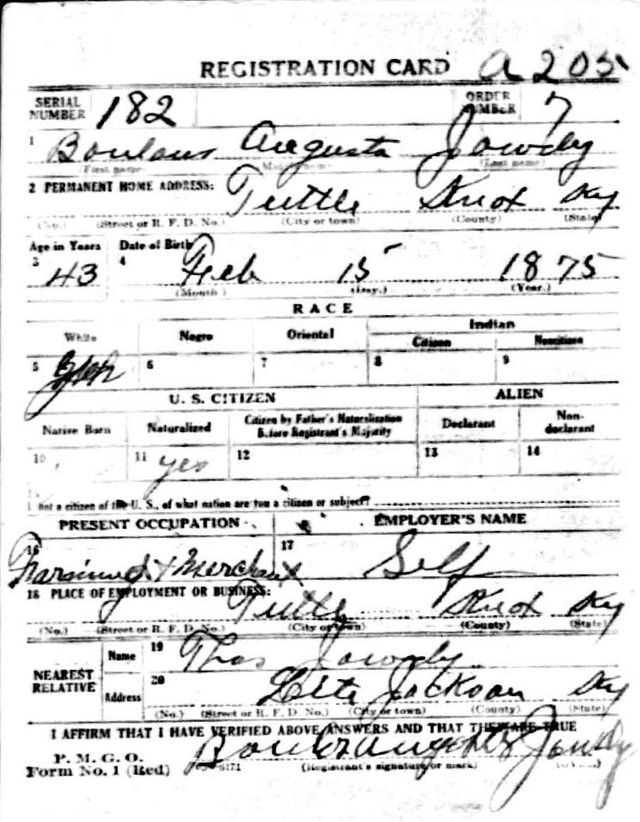 REGISTRATION CARD A205
SERIAL NUMBER 182 ORDER NUMBER 7
1 Boulous Augusta Jowdy
(First name) (Middle name) (Last name)
2 PERMANENT HOME ADDRESS: Tuttle Knox Ky
(No.) (Street or R. F. D. No.) (City or town) (County) (State)
Age in Years Date of Birth
3 43 4 Feb 15 1875
(Month) (Day.) (Year.)
RACE
White Negro Oriental Indian
Citizen Noncitizen
5 6 7 8 9
U. S. CITIZEN ALIEN
Native Born Naturalized Citizen by Father's Naturalization Before Registrant's Majority Declarant Non-declarant
10 11 yes 12 13 14
not a citizen of the U. S., of what nation are you a citizen or subject?
PRESENT OCCUPATION EMPLOYER'S NAME
16 Farming + Merchant 17 Self
18 PLACE OF EMPLOYMENT OR BUSINESS: Tuttle Knox Ky
(No.) (Street or R. F. D. No.) (City or town) (County) (State)
NEAREST RELATIVE Name 19 Thos Jowdy
Address 20 Jackson Ky
(No.) (Street or R. F. D. No.) (City or town) (County) (State)
I AFFIRM THAT I HAVE VERIFIED ABOVE ANSWERS AND THAT THEY ARE TRUE
P. M. G. O.
Form No. 1 (Red) Jowdy
(Registrant's signature or mark)